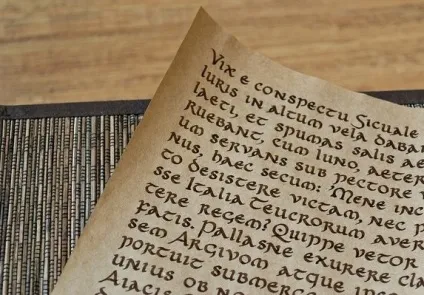 Vix e conspectu Siculae
luris in altum vela daban
laeti, et spumas salis ae
ruebant, cum Iuno, aeter
um servans sub pectore v
nus, haec secum: Mene inc
to desistere victam, nec p
sse Italia Teucrorum aver
tere regem? Quippe vetor
fatis. Pallasne exurere cla
sem Argivom atque ips
portuit submerg
unius ob no
Aiacis